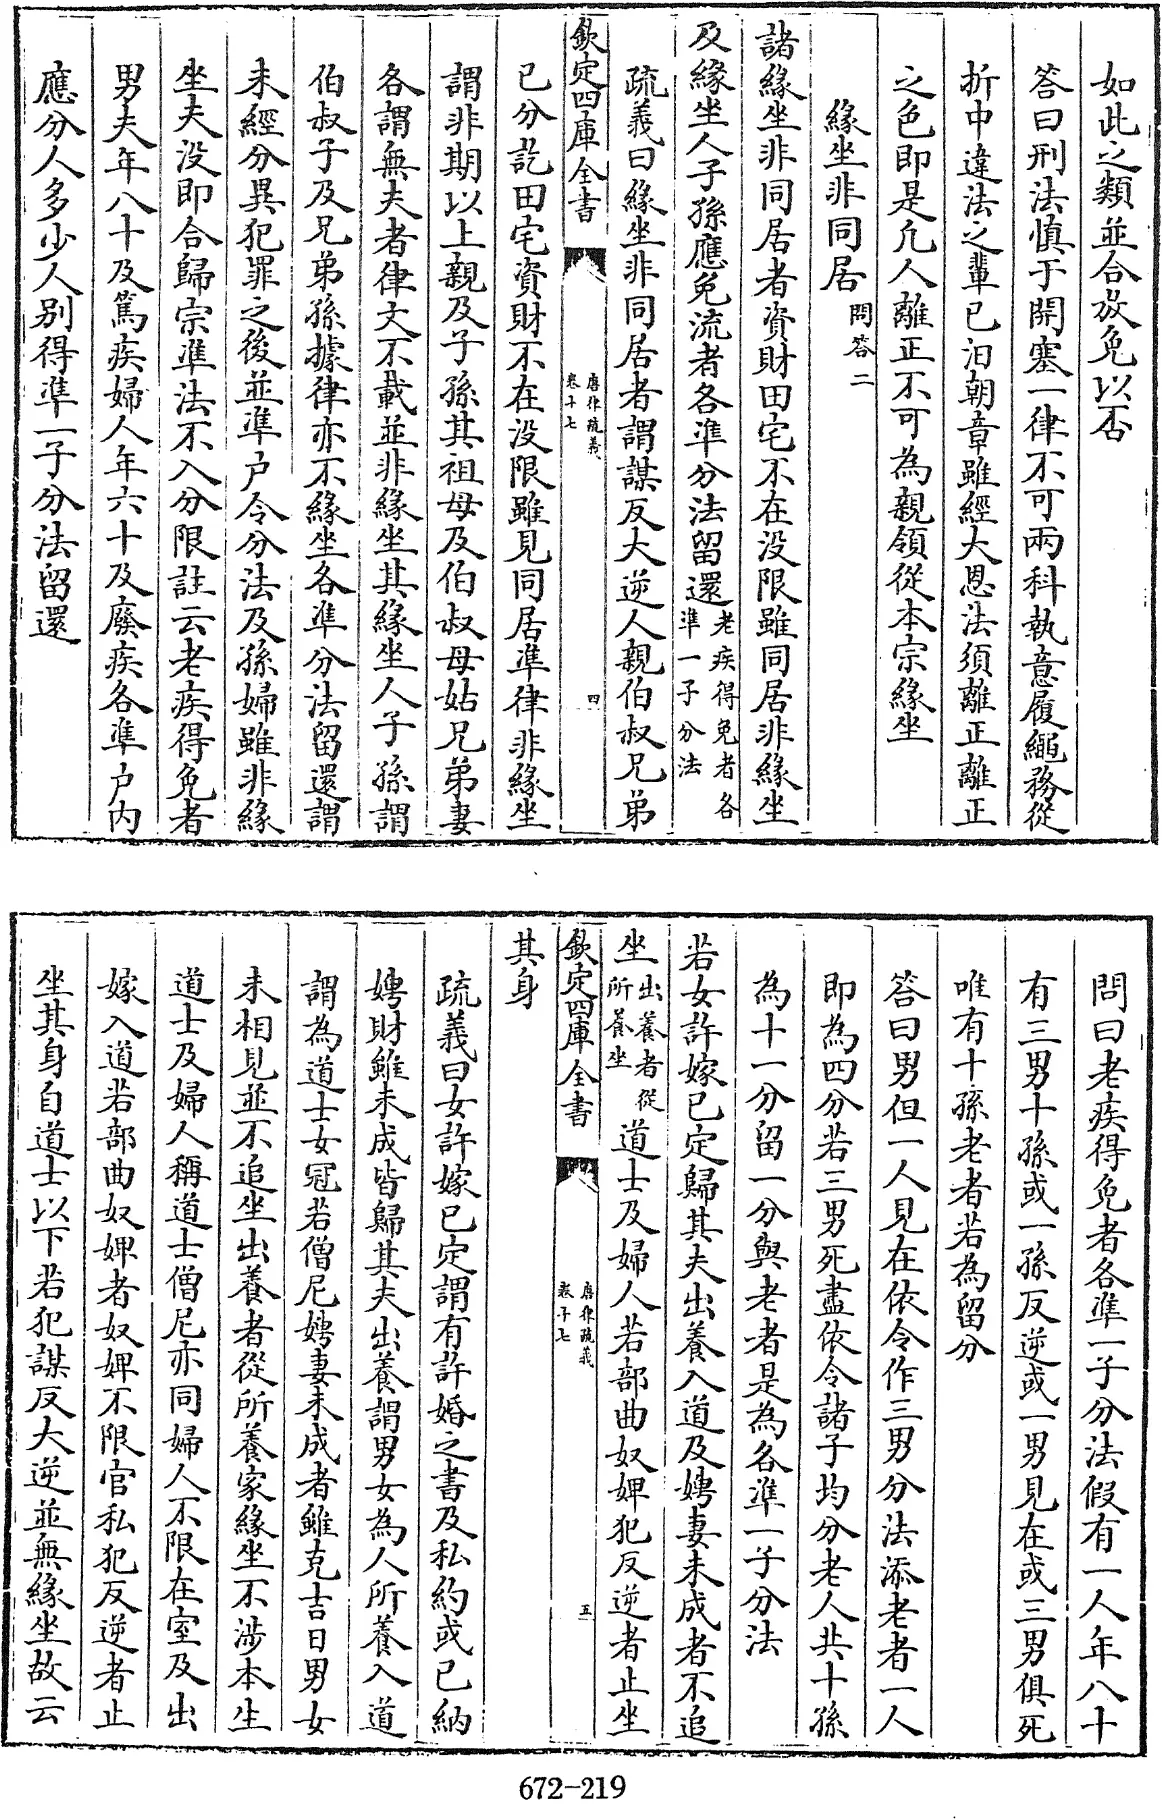 如此之類並合放免以否
答曰刑法慎于開塞一律不可兩科執意履繩務從
折中違法之輩已汨朝章雖經大恩法須離正離正
之色即是凡人離正不可為親領從本宗緣坐
緣坐非同居問答二
諸緣坐非同居者資財田宅不在没限雖同居非緣坐
及緣坐人子孫應免流者各準分法留還老疾得免者各準一子分法
疏義曰緣坐非同居者謂謀反大逆人親伯叔兄弟
欽定四庫全書
唐律疏義
卷十七
四
已分訖田宅資財不在没限雖見同居準律非緣坐
謂非期以上親及子孫其祖母及伯叔母姑兄弟妻
各謂無夫者律文不載並非緣坐其緣坐人子孫謂
伯叔子及兄弟孫據律亦不緣坐各準分法留還謂
未經分異犯罪之後並準户令分法及孫婦雖非緣
坐夫没即合歸宗準法不入分限註云老疾得免者
男夫年八十及篤疾婦人年六十及廢疾各準户内
應分人多少人别得準一子分法留還
問曰老疾得免者各準一子分法假有一人年八十
有三男十孫或一孫反逆或一男見在或三男俱死
唯有十孫老者若為留分
答曰男但一人見在依令作三男分法添老者一人
即為四分若三男死盡依令諸子均分老人共十孫
為十一分留一分與老者是為各準一子分法
若女許嫁已定歸其夫出養入道及娉妻未成者不追
坐出養者從所養坐道士及婦人若部曲奴婢犯反逆者止坐
欽定四庫全書
唐律疏義
卷十七
五
其身
疏義曰女許嫁已定謂有許婚之書及私約或已納
娉財雖未成皆歸其夫出養謂男女為人所養入道
謂為道士女冠若僧尼娉妻未成者雖克吉日男女
未相見並不追坐出養者從所養家緣坐不涉本生
道士及婦人稱道士僧尼亦同婦人不限在室及出
嫁入道若部曲奴婢者奴婢不限官私犯反逆者止
坐其身自道士以下若犯謀反大逆並無緣坐故云
672-219